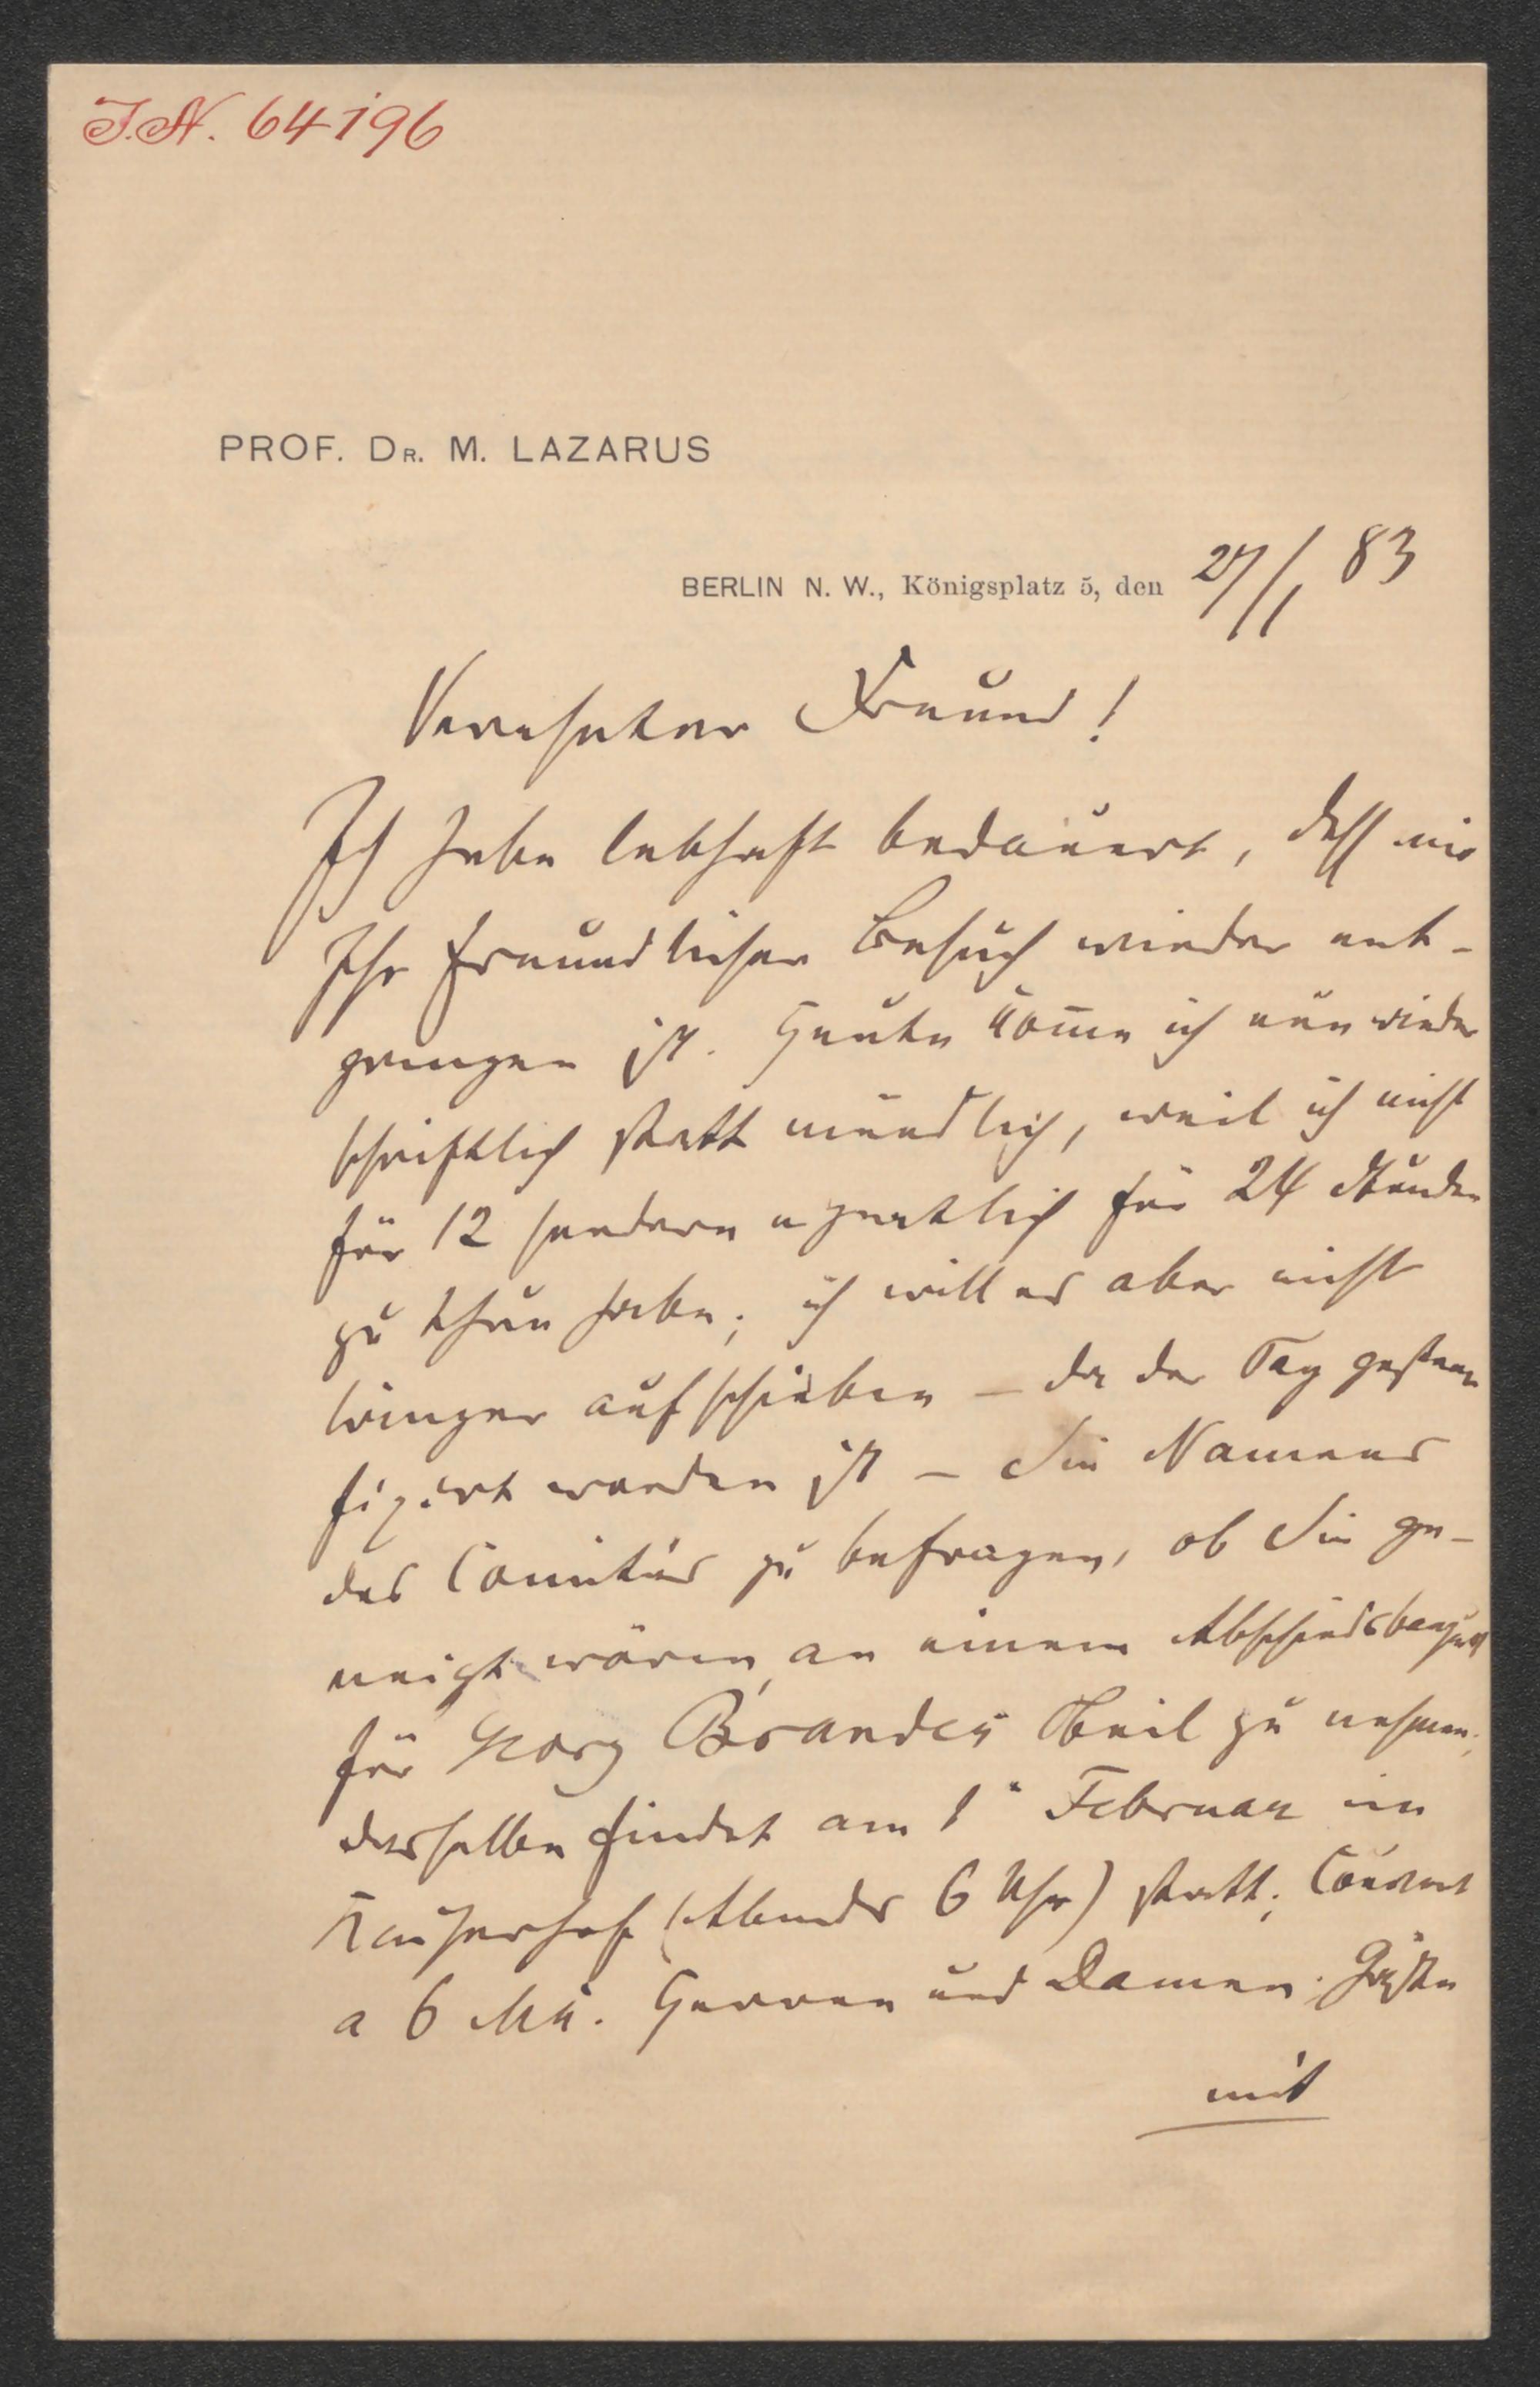 J.N. 64196
PROF. DR. M. LAZARUS
BERLIN N. W., Königsplatz 5, den 27/1 83
Verehrter Freund!
Ich habe lebhaft bedauert, daß mir
Ihr freundlicher Besuch wieder ent-
gangen ist. Heute kom̄e ich nun wieder
schriftlich statt mündlich, weil ich nicht
für 12 sondern eigentlich für 24 Stunden
zu thun habe; ich will es aber nicht
länger aufschieben – da der Tag gestern
fixirt worden ist – Sie Namens
des Comités zu befragen, ob Sie ge-
neigt wären, an einem Abschiedsbanquet
für Georg Brandes Theil zu nehmen;
dasselbe findet am 1. Februar im
Kaiserhof (Abends 6 Uhr) statt; Couvert
a 6 Mk. Herren und Damen. Gäste
mit